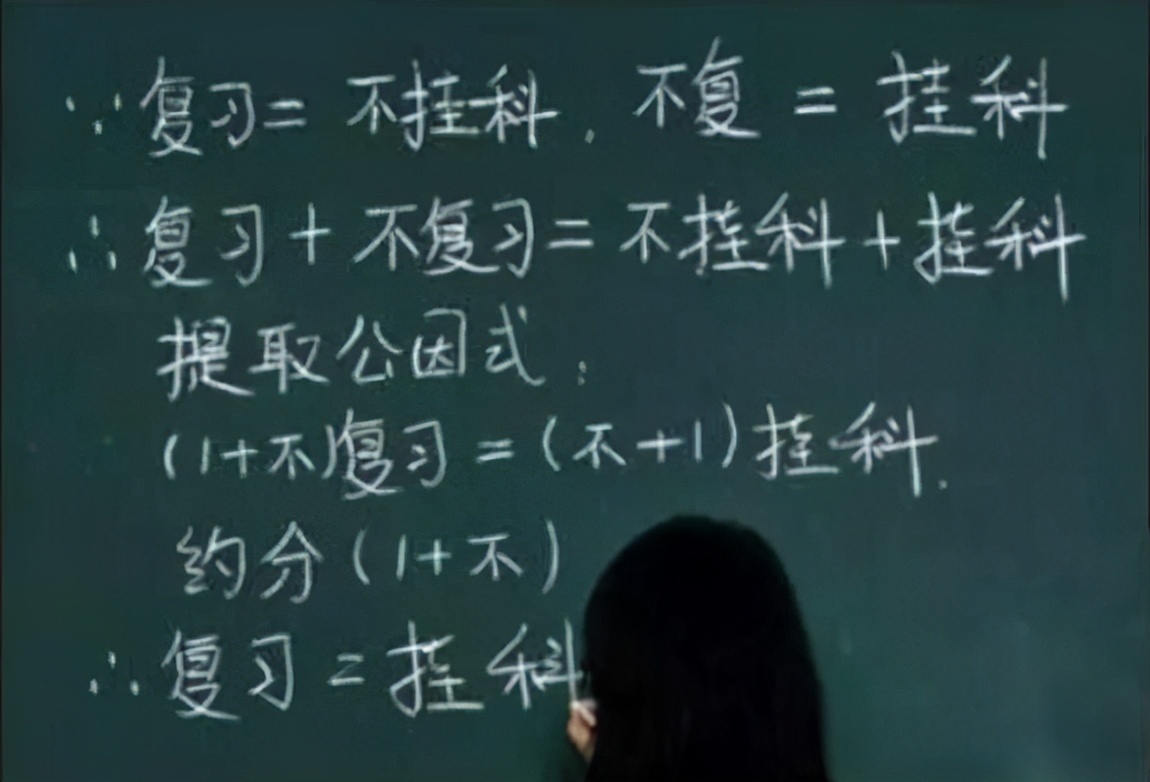 ∵复习=不挂科.不复=挂科
∴复习+不复习=不挂科+挂科
提取公因式:
(1+不)复习=(不+1)挂科.
约分(1+不)
∴复习=挂科